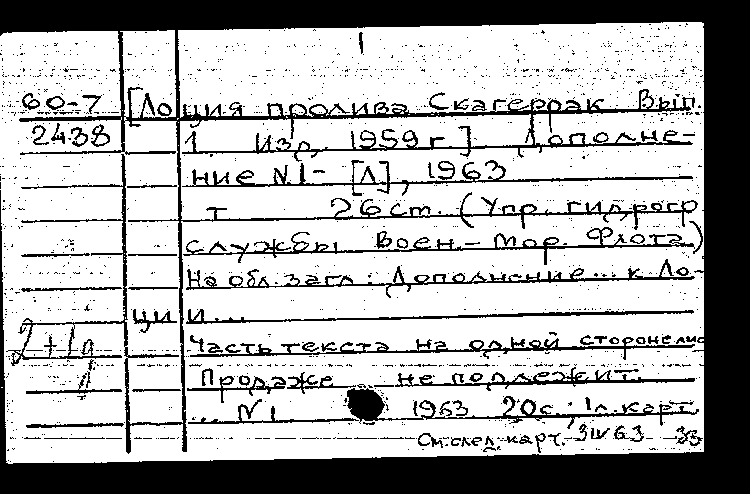 1
60-7 [Лоция пролива Скагеррак Вып.
2438 1. Изд. 1959 г] Дополне-
ние N.1- [Л], 1963
т 26 ст. (Упр. гидрогр
службы Воен.-мор. Флота)
На обл. загл: Дополнение... к Ло-
ции...
2+1д Часть текста на одной стороне лис
Продаже не подлежит.
... N1 1963 20с.; 1л. карт.
См. след. карт. 3IV63 33